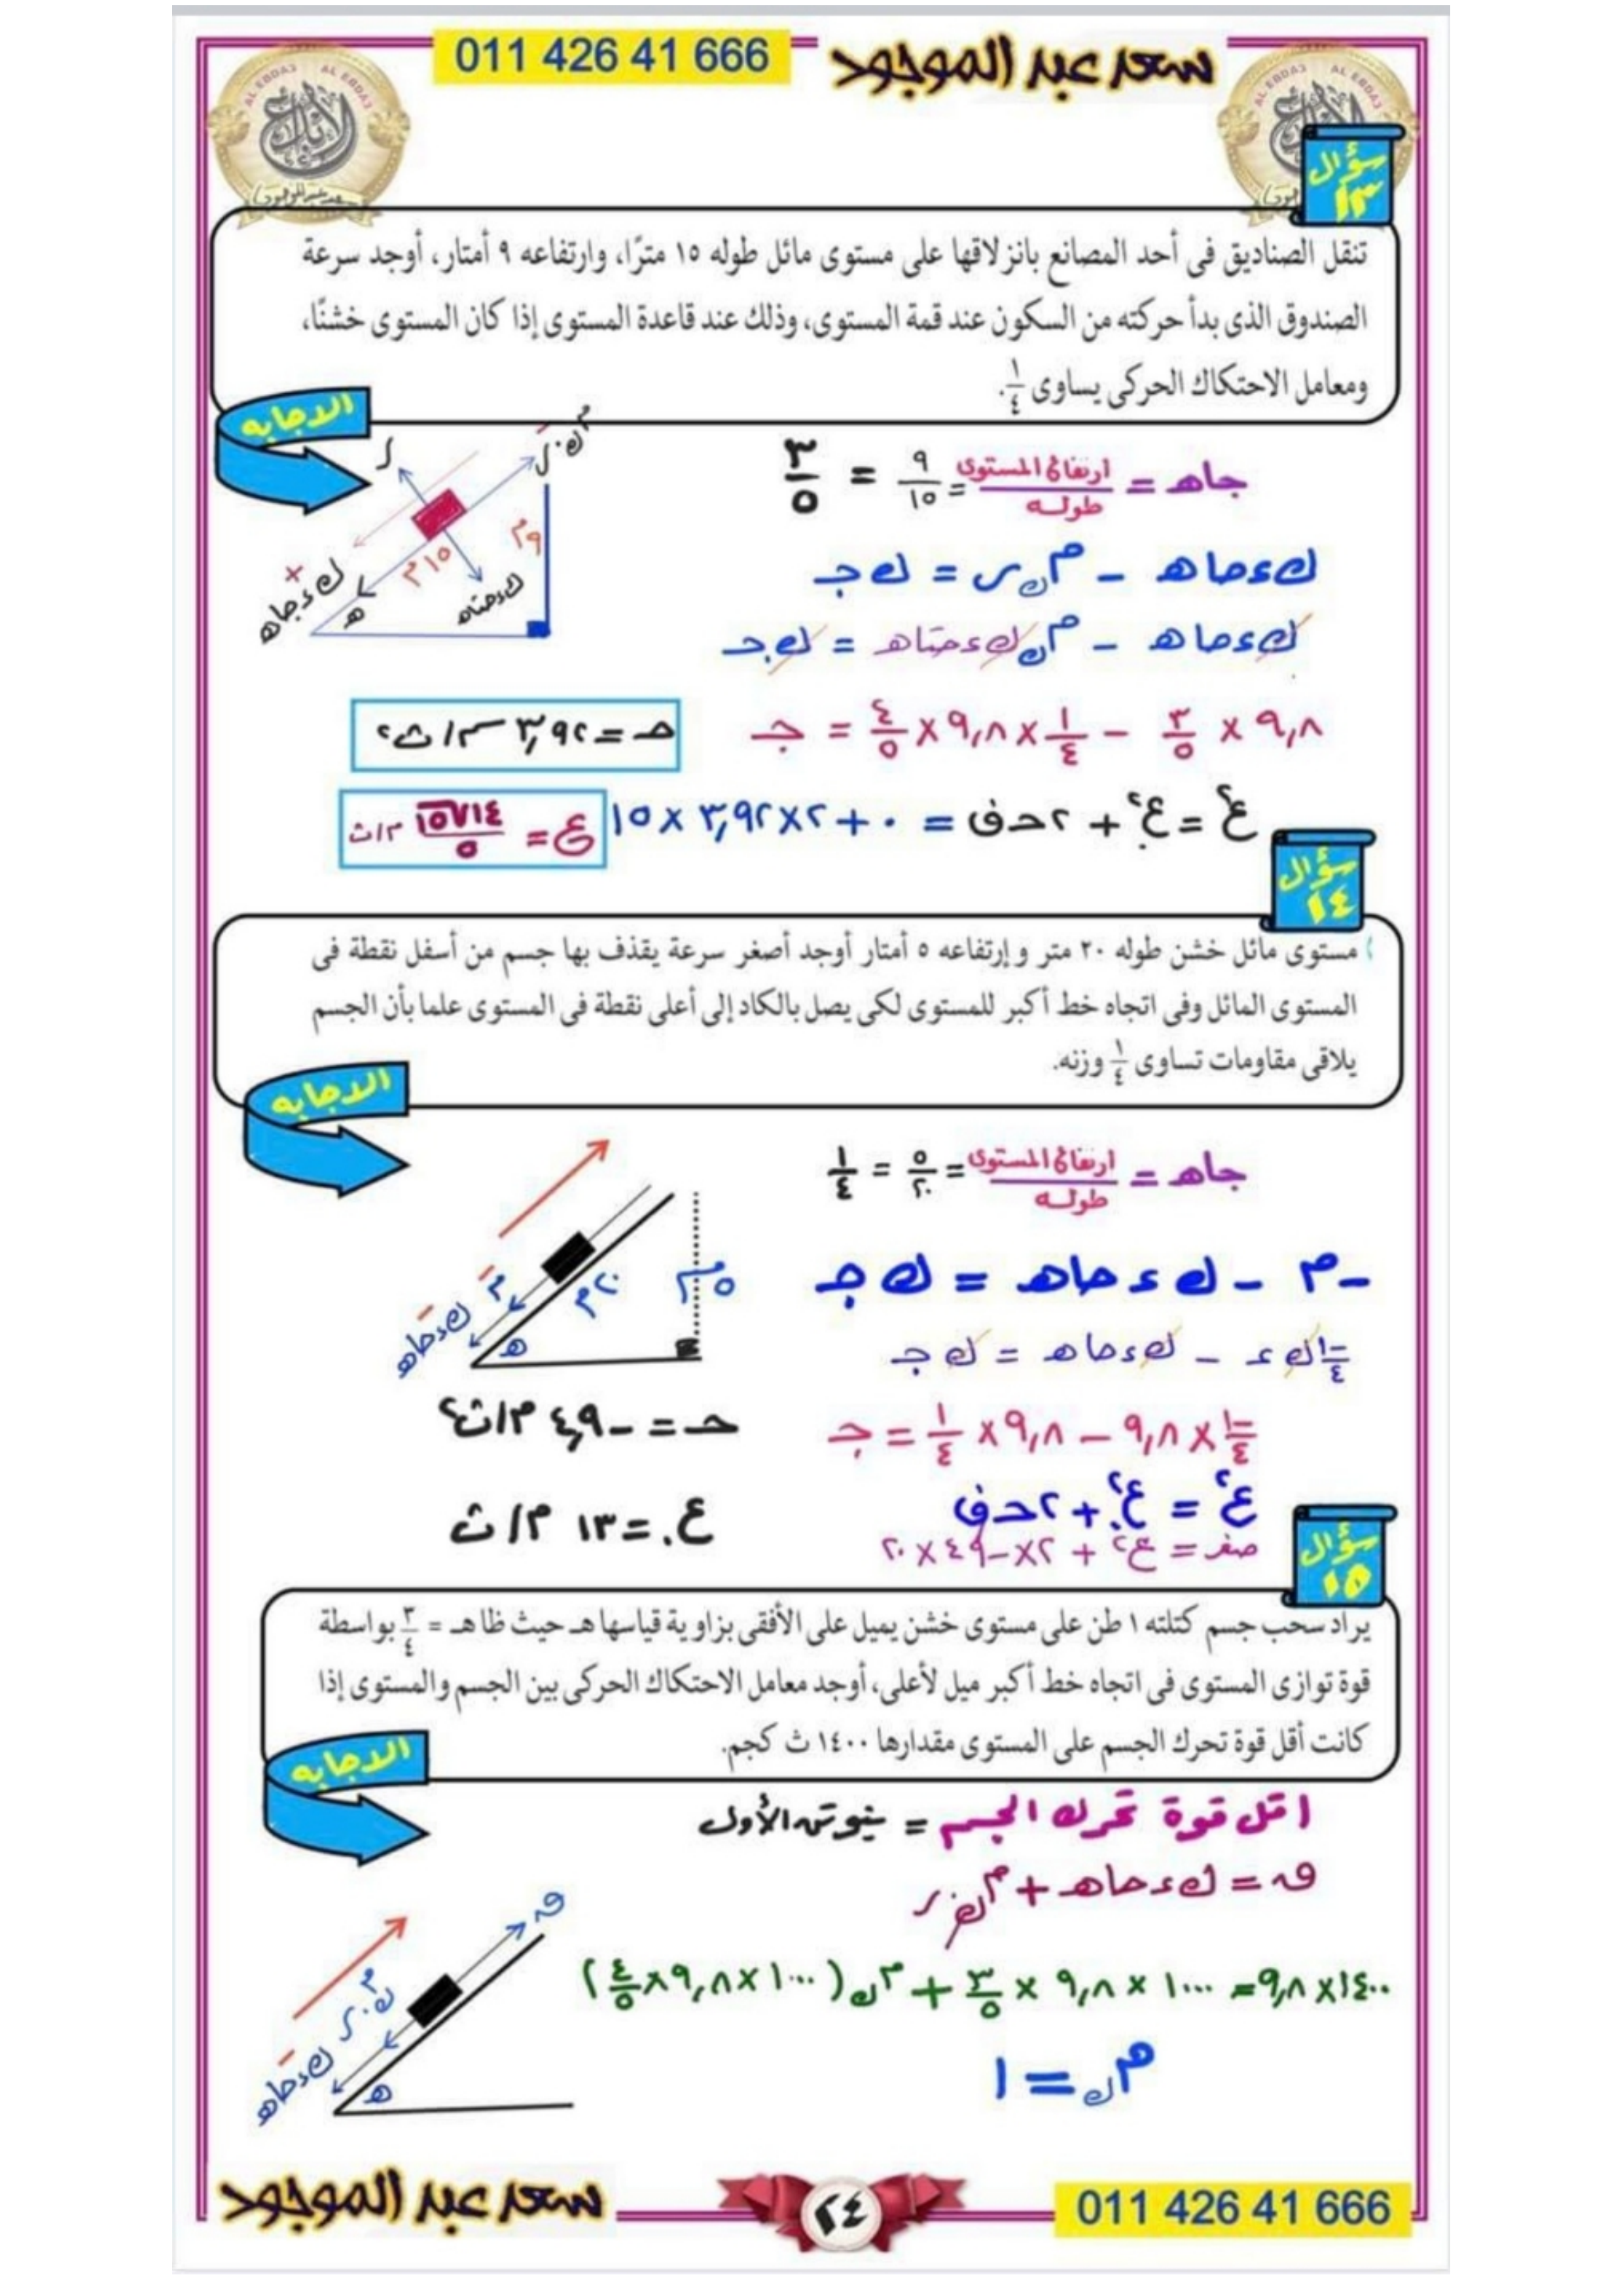 011 426 41 666
سعد عبد الموجود
سؤال
١٣
تنقل الصناديق فى أحد المصانع بانزلاقها على مستوى مائل طوله ١٥ مترًا، وارتفاعه ٩ أمتار، أوجد سرعة
الصندوق الذى بدأ حركته من السكون عند قمة المستوى، وذلك عند قاعدة المستوى إذا كان المستوى خشنًا،
ومعامل الاحتكاك الحركى يساوى ١/٤.
الاجابه
جاهـ = ارتفاع المستوى/طوله = ٩/١٥ = ٣/٥
ك ء حاهـ - م ك ر = ك جـ
ك ء حاهـ - م ك ك ء حتاهـ = ك جـ
٩,٨ × ٣/٥ - ١/٤ × ٩,٨ × ٤/٥ = جـ
حـ = ٣,٩٢ م/ث٢
ع٢ = ع.٢ + ٢ حـ ف = ٠ + ٢ × ٣,٩٢ × ١٥
ع = ١٤√١٥/٥ م/ث
سؤال
١٤
مستوى مائل خشن طوله ٢٠ متر و إرتفاعه ٥ أمتار أوجد أصغر سرعة يقذف بها جسم من أسفل نقطة فى
المستوى المائل وفى اتجاه خط أكبر للمستوى لكى يصل بالكاد إلى أعلى نقطة فى المستوى علما بأن الجسم
يلاقى مقاومات تساوى ١/٤ وزنه.
الاجابه
جاهـ = ارتفاع المستوى/طوله = ٥/٢٠ = ١/٤
- م - ك ء حاهـ = ك جـ
-١/٤ ك ء - ك ء حاهـ = ك جـ
-١/٤ × ٩,٨ - ٩,٨ × ١/٤ = جـ
حـ = -٤,٩ م/ث٢
ع٢ = ع.٢ + ٢ حـ ف
صفر = ع.٢ + ٢ × -٤٩ × ٢٠
ع. = ١٣ م/ث
سؤال
١٥
يراد سحب جسم كتلته ١ طن على مستوى خشن يميل على الأفقى بزاوية قياسها هـ حيث ظا هـ = ٣/٤ بواسطة
قوة توازى المستوى فى اتجاه خط أكبر ميل لأعلى، أوجد معامل الاحتكاك الحركى بين الجسم والمستوى إذا
كانت أقل قوة تحرك الجسم على المستوى مقدارها ١٤٠٠ ث كجم.
الاجابه
اقل قوة تحرك الجسم = نيوتن الأول
ق = ك ء حاهـ + م ك ر
١٤٠٠ × ٩,٨ = ١٠٠٠ × ٩,٨ × ٣/٥ + م ك (١٠٠٠ × ٩,٨ × ٤/٥)
م ك = ١
سعد عبد الموجود
٢٤
011 426 41 666